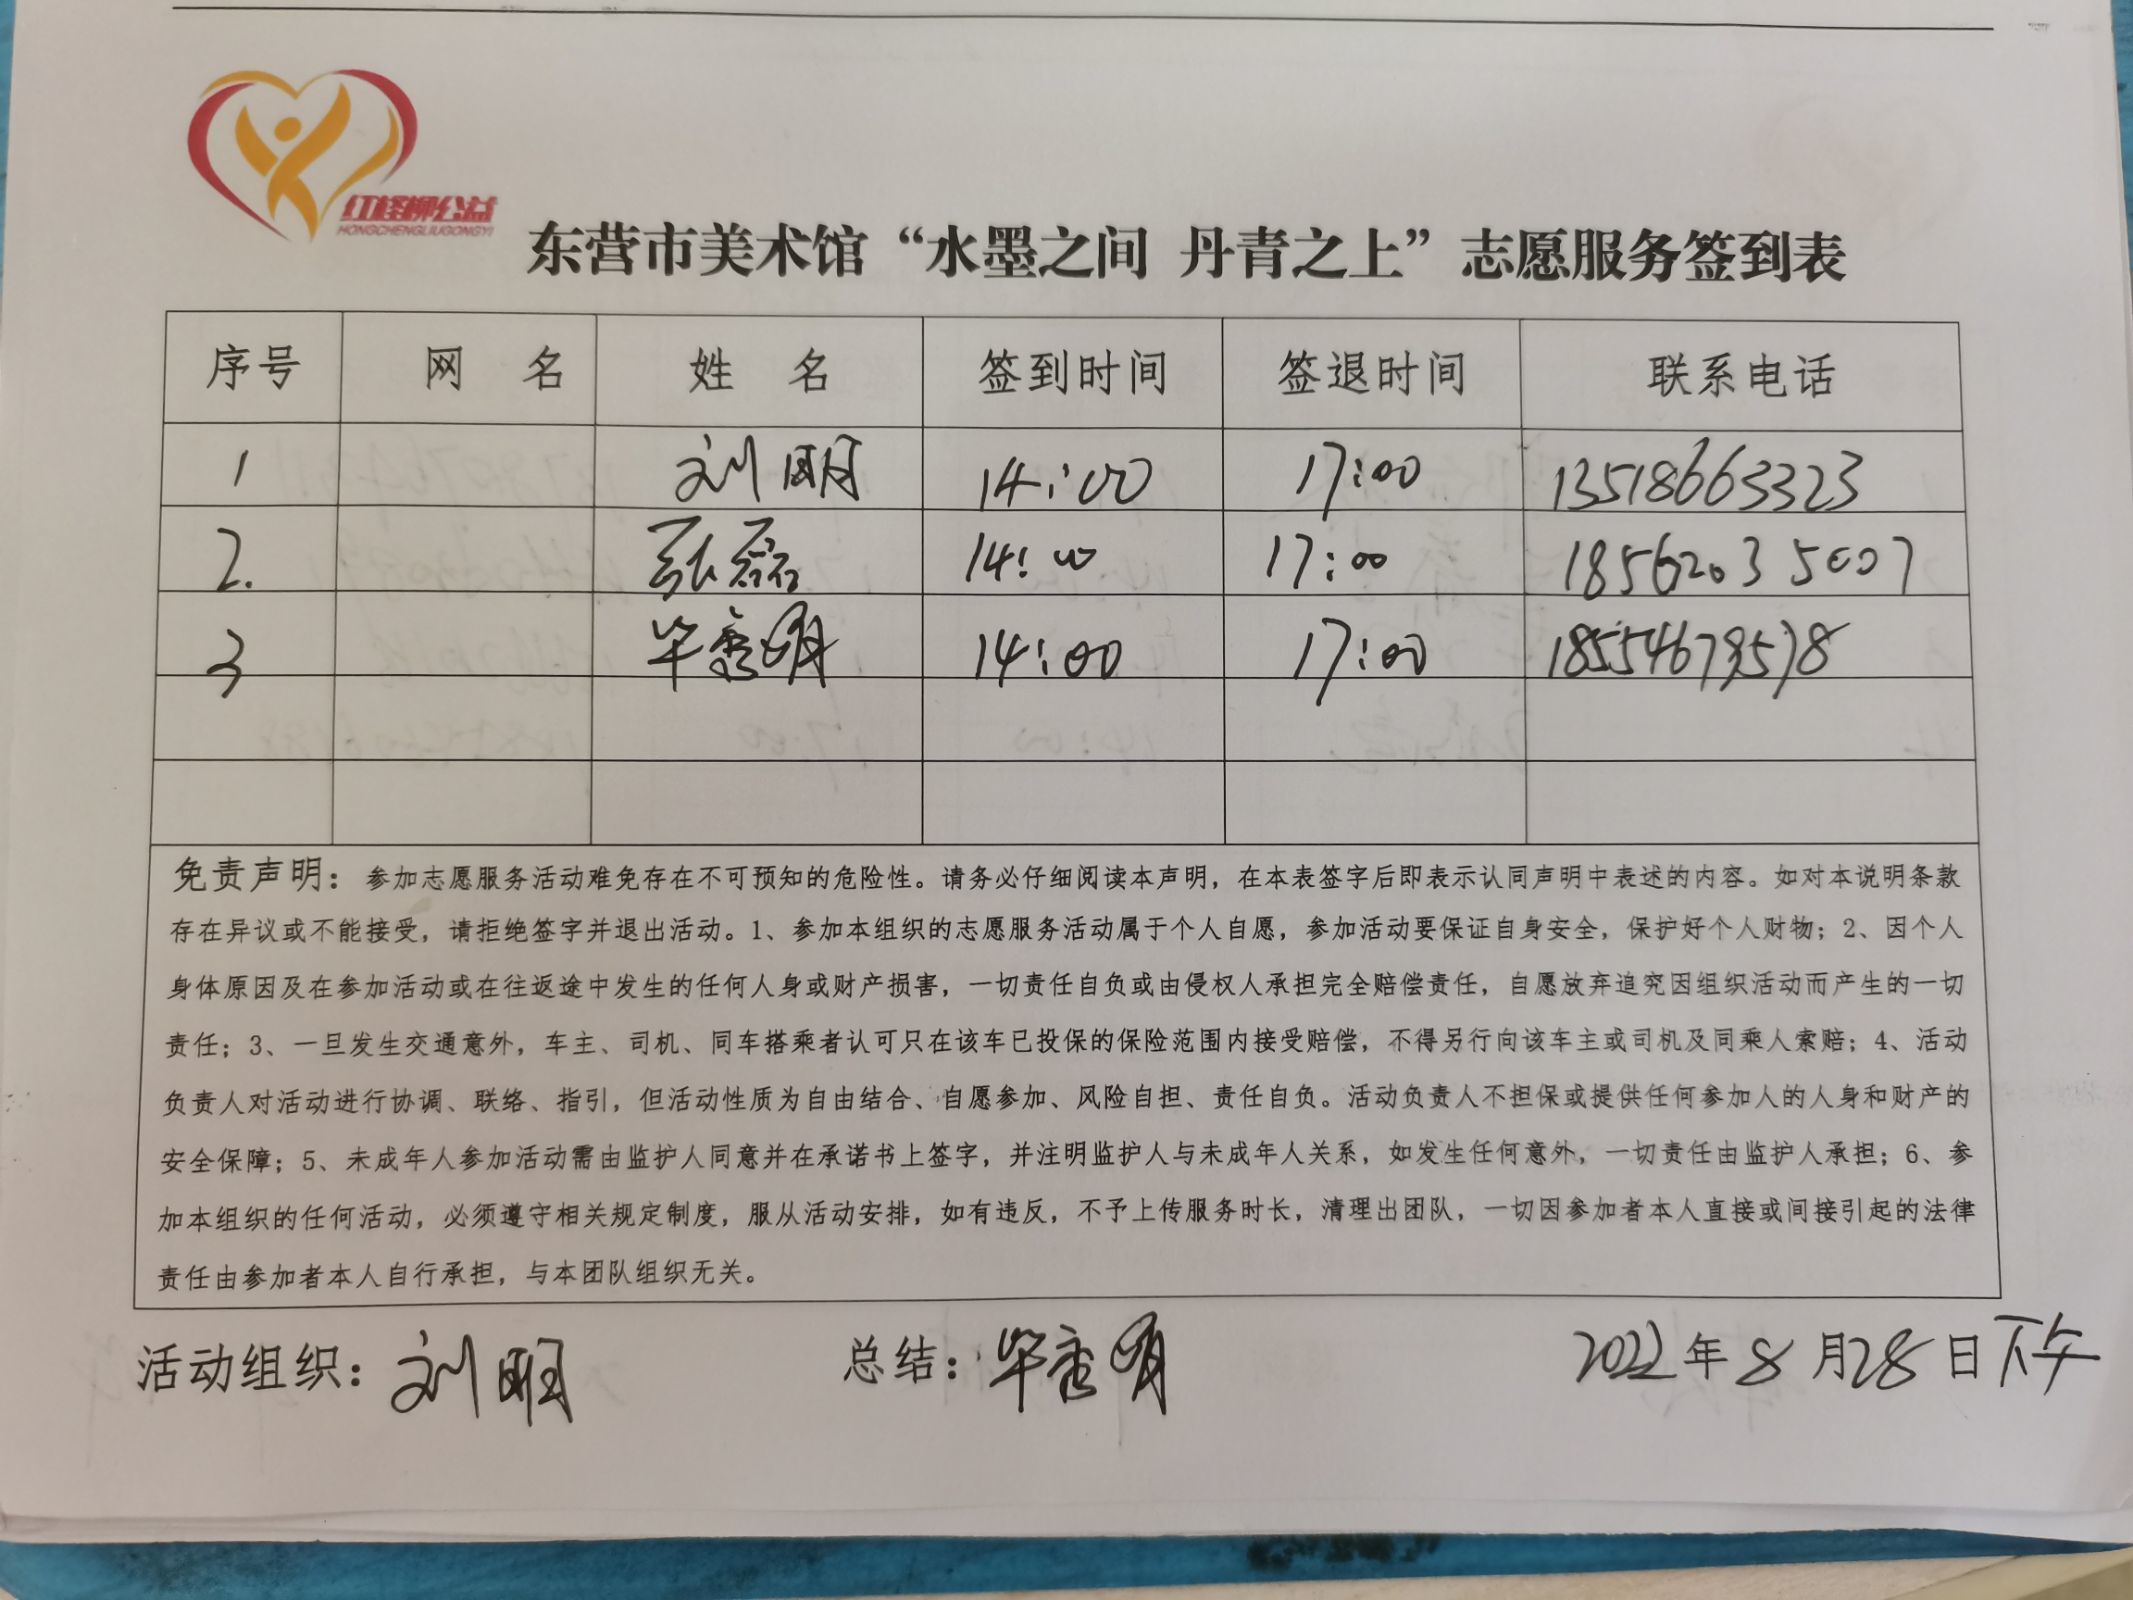 红柽柳公益
HONGCHENGLIUGONGYI
东营市美术馆“水墨之间 丹青之上”志愿服务签到表
序号 网 名 姓 名 签到时间 签退时间 联系电话
1 刘明 14:00 17:00 13518663323
2. 张磊 14:00 17:00 18562035007
3 毕秀明 14:00 17:00 18554679578
免责声明：参加志愿服务活动难免存在不可预知的危险性。请务必仔细阅读本声明，在本表签字后即表示认同声明中表述的内容。如对本说明条款
存在异议或不能接受，请拒绝签字并退出活动。1、参加本组织的志愿服务活动属于个人自愿，参加活动要保证自身安全，保护好个人财物；2、因个人
身体原因及在参加活动或在往返途中发生的任何人身或财产损害，一切责任自负或由侵权人承担完全赔偿责任，自愿放弃追究因组织活动而产生的一切
责任；3、一旦发生交通意外，车主、司机、同车搭乘者认可只在该车已投保的保险范围内接受赔偿，不得另行向该车主或司机及同乘人索赔；4、活动
负责人对活动进行协调、联络、指引，但活动性质为自由结合、自愿参加、风险自担、责任自负。活动负责人不担保或提供任何参加人的人身和财产的
安全保障；5、未成年人参加活动需由监护人同意并在承诺书上签字，并注明监护人与未成年人关系，如发生任何意外，一切责任由监护人承担；6、参
加本组织的任何活动，必须遵守相关规定制度，服从活动安排，如有违反，不予上传服务时长，清理出团队，一切因参加者本人直接或间接引起的法律
责任由参加者本人自行承担，与本团队组织无关。
活动组织：刘明 总结：毕秀明 2022年8月28日下午